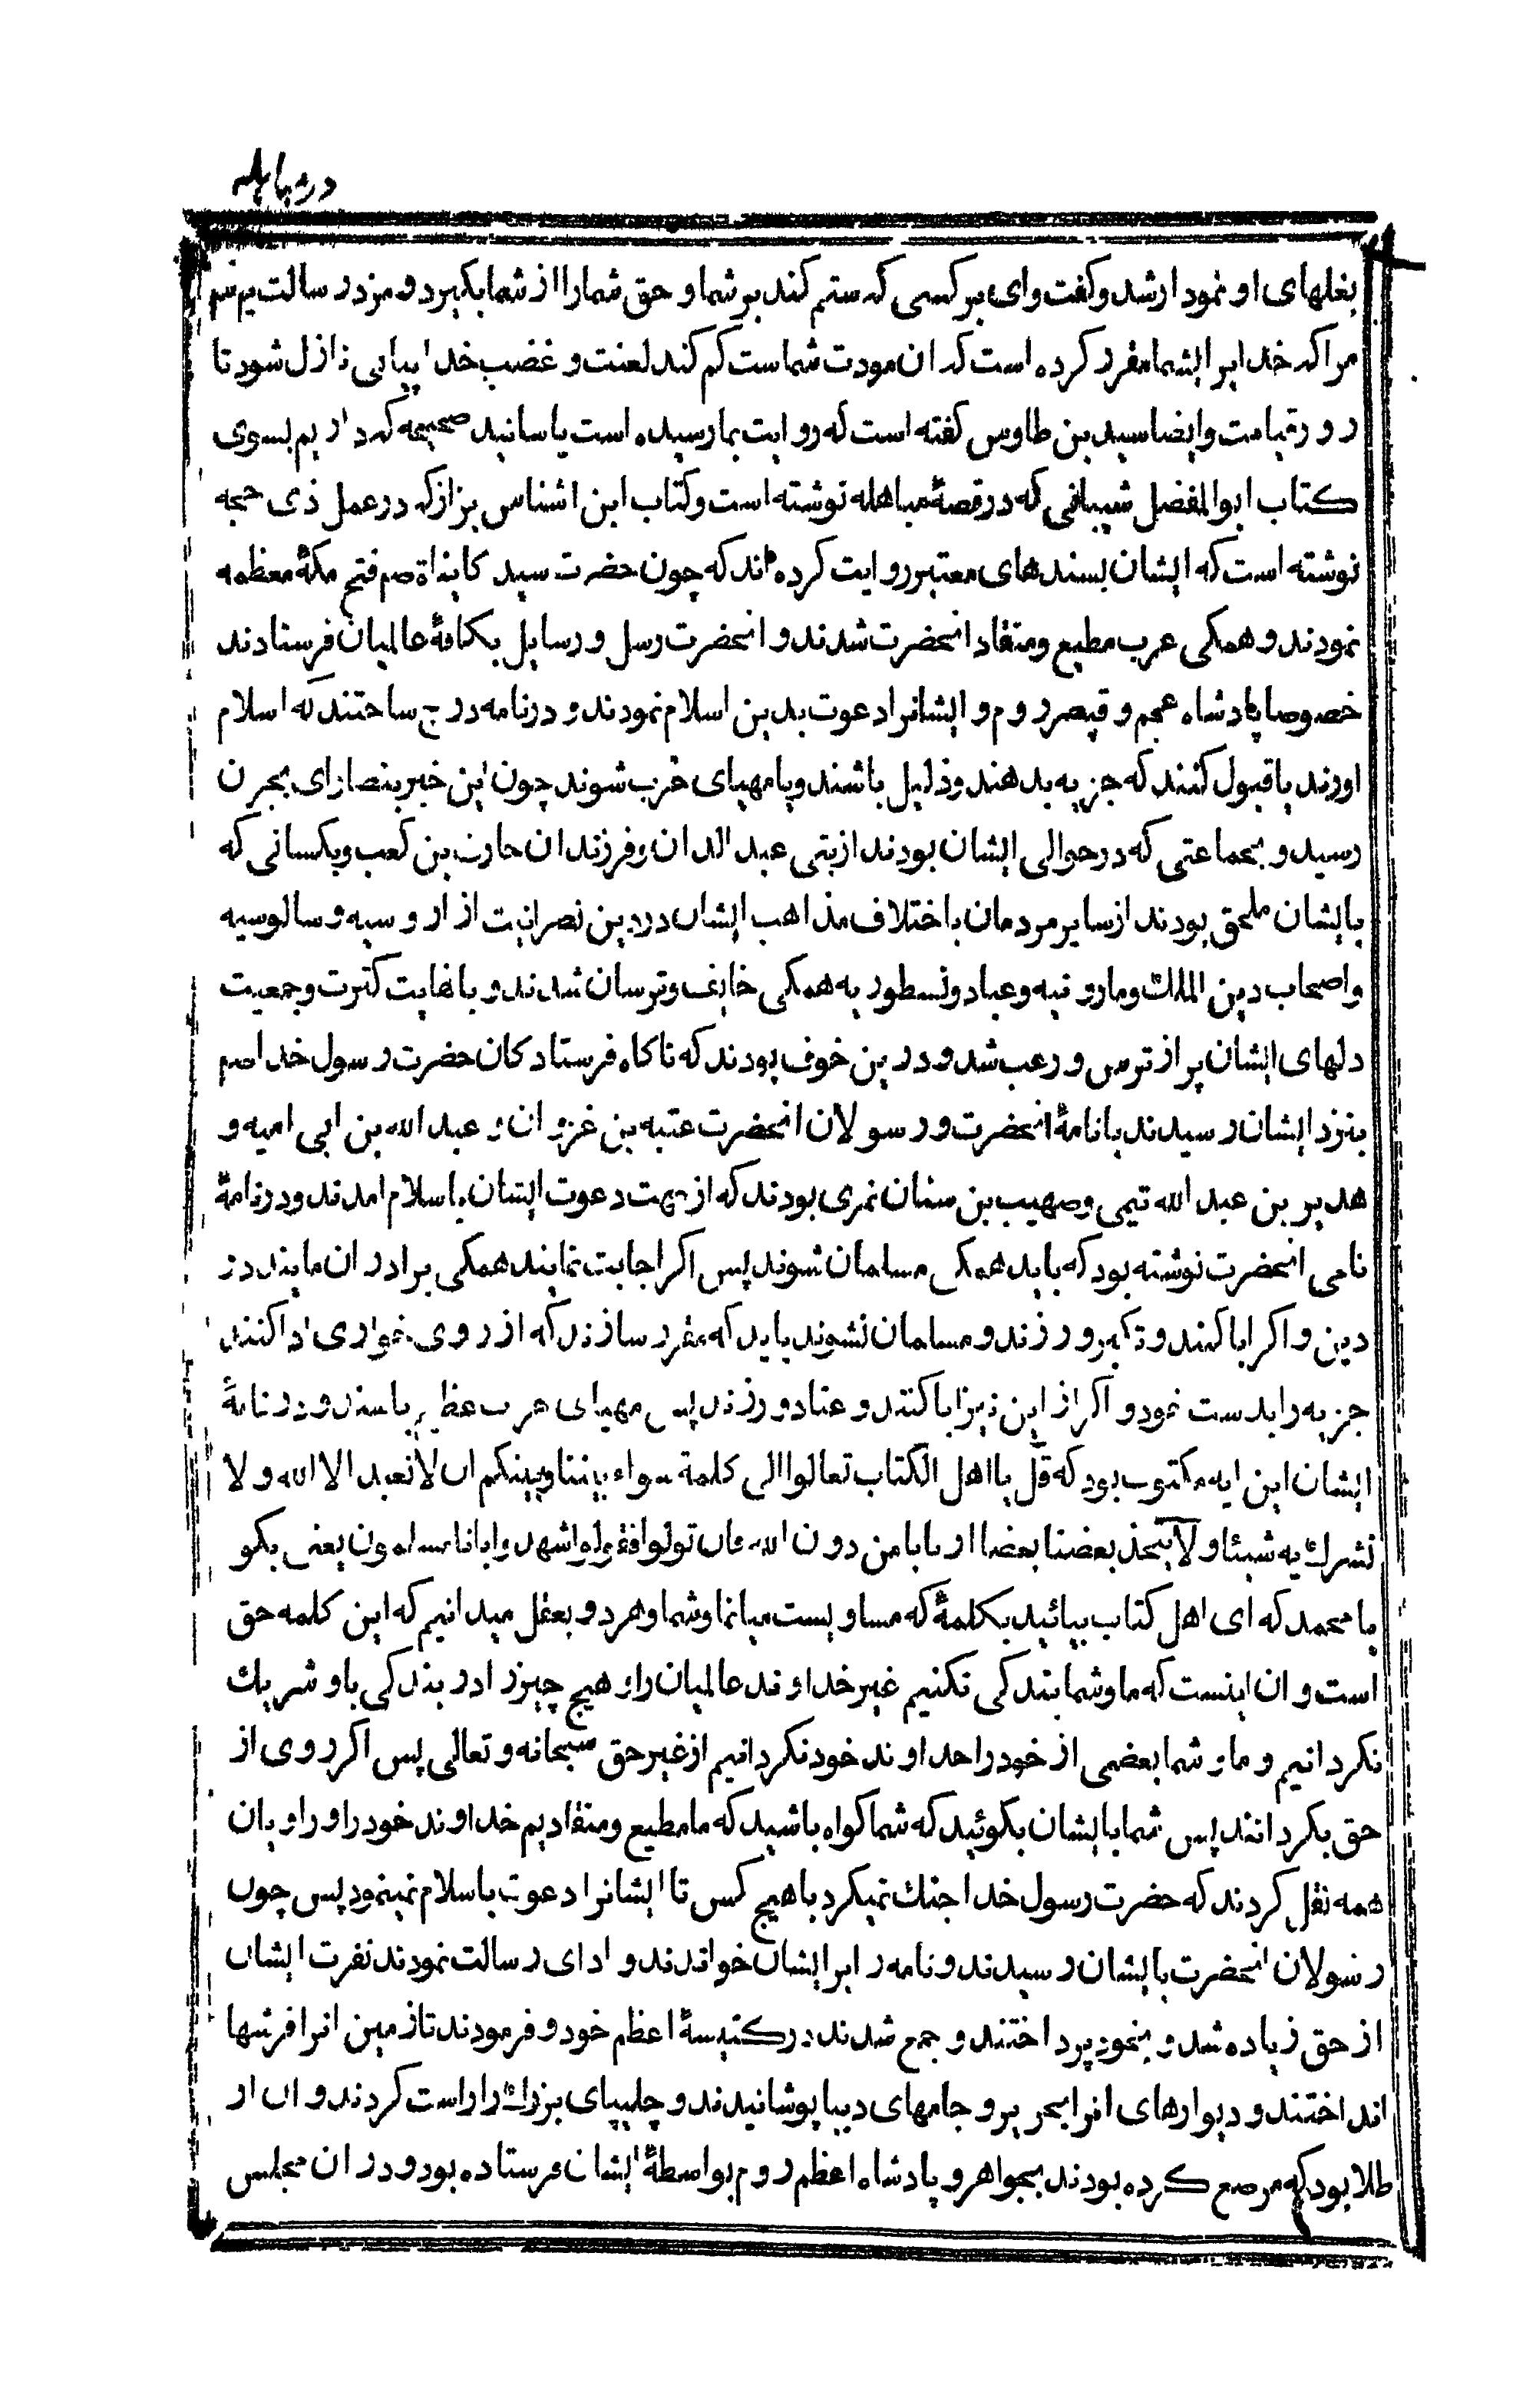 در مباهله
بغلهای او نمودار شد و کفت وای بر کسی که ستم کند بر شما و حق شما را از شما بکیرد و مزد رسالت
مرا که خدا بر ایشما مقرر کرده است که ان مودت شماست کم کند لعنت و غضب خدا پیاپی نازل شود تا
روز قیامت و ایضا سید بن طاوس کفته است که روایت بما رسیده است باسانید صحیحه که داریم بسوی
کتاب ابو المفضل شیبانی که در قصهٔ مباهله نوشته است و کتاب ابن اشناس بزاز که در عمل ذی حجه
نوشته است که ایشان بسندهای معتبر روایت کرده اند که چون حضرت سید کاینات صم فتح مکهٔ معظمه
نمودند و همکی عرب مطیع و منقاد انحضرت شدند و انحضرت رسل و رسایل بکافهٔ عالمیان فرستادند
خصوصا پادشاه عجم و قیصر روم و ایشانرا دعوت بدین اسلام نمودند و در نامه درج ساختند که اسلام
اورند یا قبول کنند که جزیه بدهند و ذلیل باشند و یا مهیای حرب شوند چون این خبر بنصارای نجران
رسید و بجماعتی که در حوالی ایشان بودند از بنی عبد المدان و فرزندان حارث بن کعب و بکسانی که
بایشان ملحق بودند از سایر مردمان باختلاف مذاهب ایشان در دین نصرانیت از اروسیه و سالوسیه
و اصحاب دین الملك و مارونیه و عباد و نسطوریه همکی خایف و ترسان شدند و با نهایت کثرت و جمعیت
دلهای ایشان پر از ترس و رعب شد و در ین خوف بودند که ناکاه فرستادکان حضرت رسول خدا صم
بنزد ایشان رسیدند با نامهٔ انحضرت و رسولان انحضرت عتبه بن غزوان و عبد الله بن ابی امیه و
هدیر بن عبد الله تیمی و صهیب بن سنان نمری بودند که از جهت دعوت ایشان باسلام امدند و در نامهٔ
نامی انحضرت نوشته بود که باید همکی مسلمان شوند پس اکر اجابت نمایند همکی برادران مایند در
دین و اکر ابا کنند و تکبر ورزند و مسلمان نشوند باید که مقرر سازند که از روی خواری ادا کنند
جزیه را بدست خود و اکر از این نیز ابا کنند و عناد ورزند پس مهیای حرب عظیم باشند و در نامهٔ
ایشان این ایه مکتوب بود که قل یا اهل الکتاب تعالوا الی کلمة سواء بیننا وبینکم ان لا نعبد الا الله و لا
نشرك به شیئا و لا یتخذ بعضنا بعضا اربابا من دون الله فان تولوا فقولوا اشهدوا بانا مسلمون یعنی بکو
یا محمد که ای اهل کتاب بیائید بکلمهٔ که مساویست میانما و شما و هر دو بعقل میدانیم که این کلمه حق
است و ان اینست که ما و شما بندکی نکنیم غیر خداوند عالمیان را و هیچ چیز را در بندکی باو شریك
نکردانیم و ما و شما بعضی از خود را خداوند خود نکردانیم از غیر حق سبحانه و تعالی پس اکر روی از
حق بکردانند پس شما بایشان بکوئید که شما کواه باشید که ما مطیع و منقادیم خداوند خود را و راویان
همه نقل کردند که حضرت رسول خدا جنك نمیکرد با هیچ کس تا ایشانرا دعوت باسلام نمینمود پس چون
رسولان انحضرت بایشان رسیدند و نامه را بر ایشان خواندند و ادای رسالت نمودند نفرت ایشان
از حق زیاده شد و بخود پرداختند و جمع شدند در کنیسهٔ اعظم خود و فرمودند تا زمین انرا فرشها
انداختند و دیوارهای انرا بحریر و جامهای دیبا پوشانیدند و چلیپای بزرك را راست کردند و ان از
طلا بود که مرصع کرده بودند بجواهر و پادشاه اعظم روم بواسطهٔ ایشان فرستاده بود و در ان مجلس